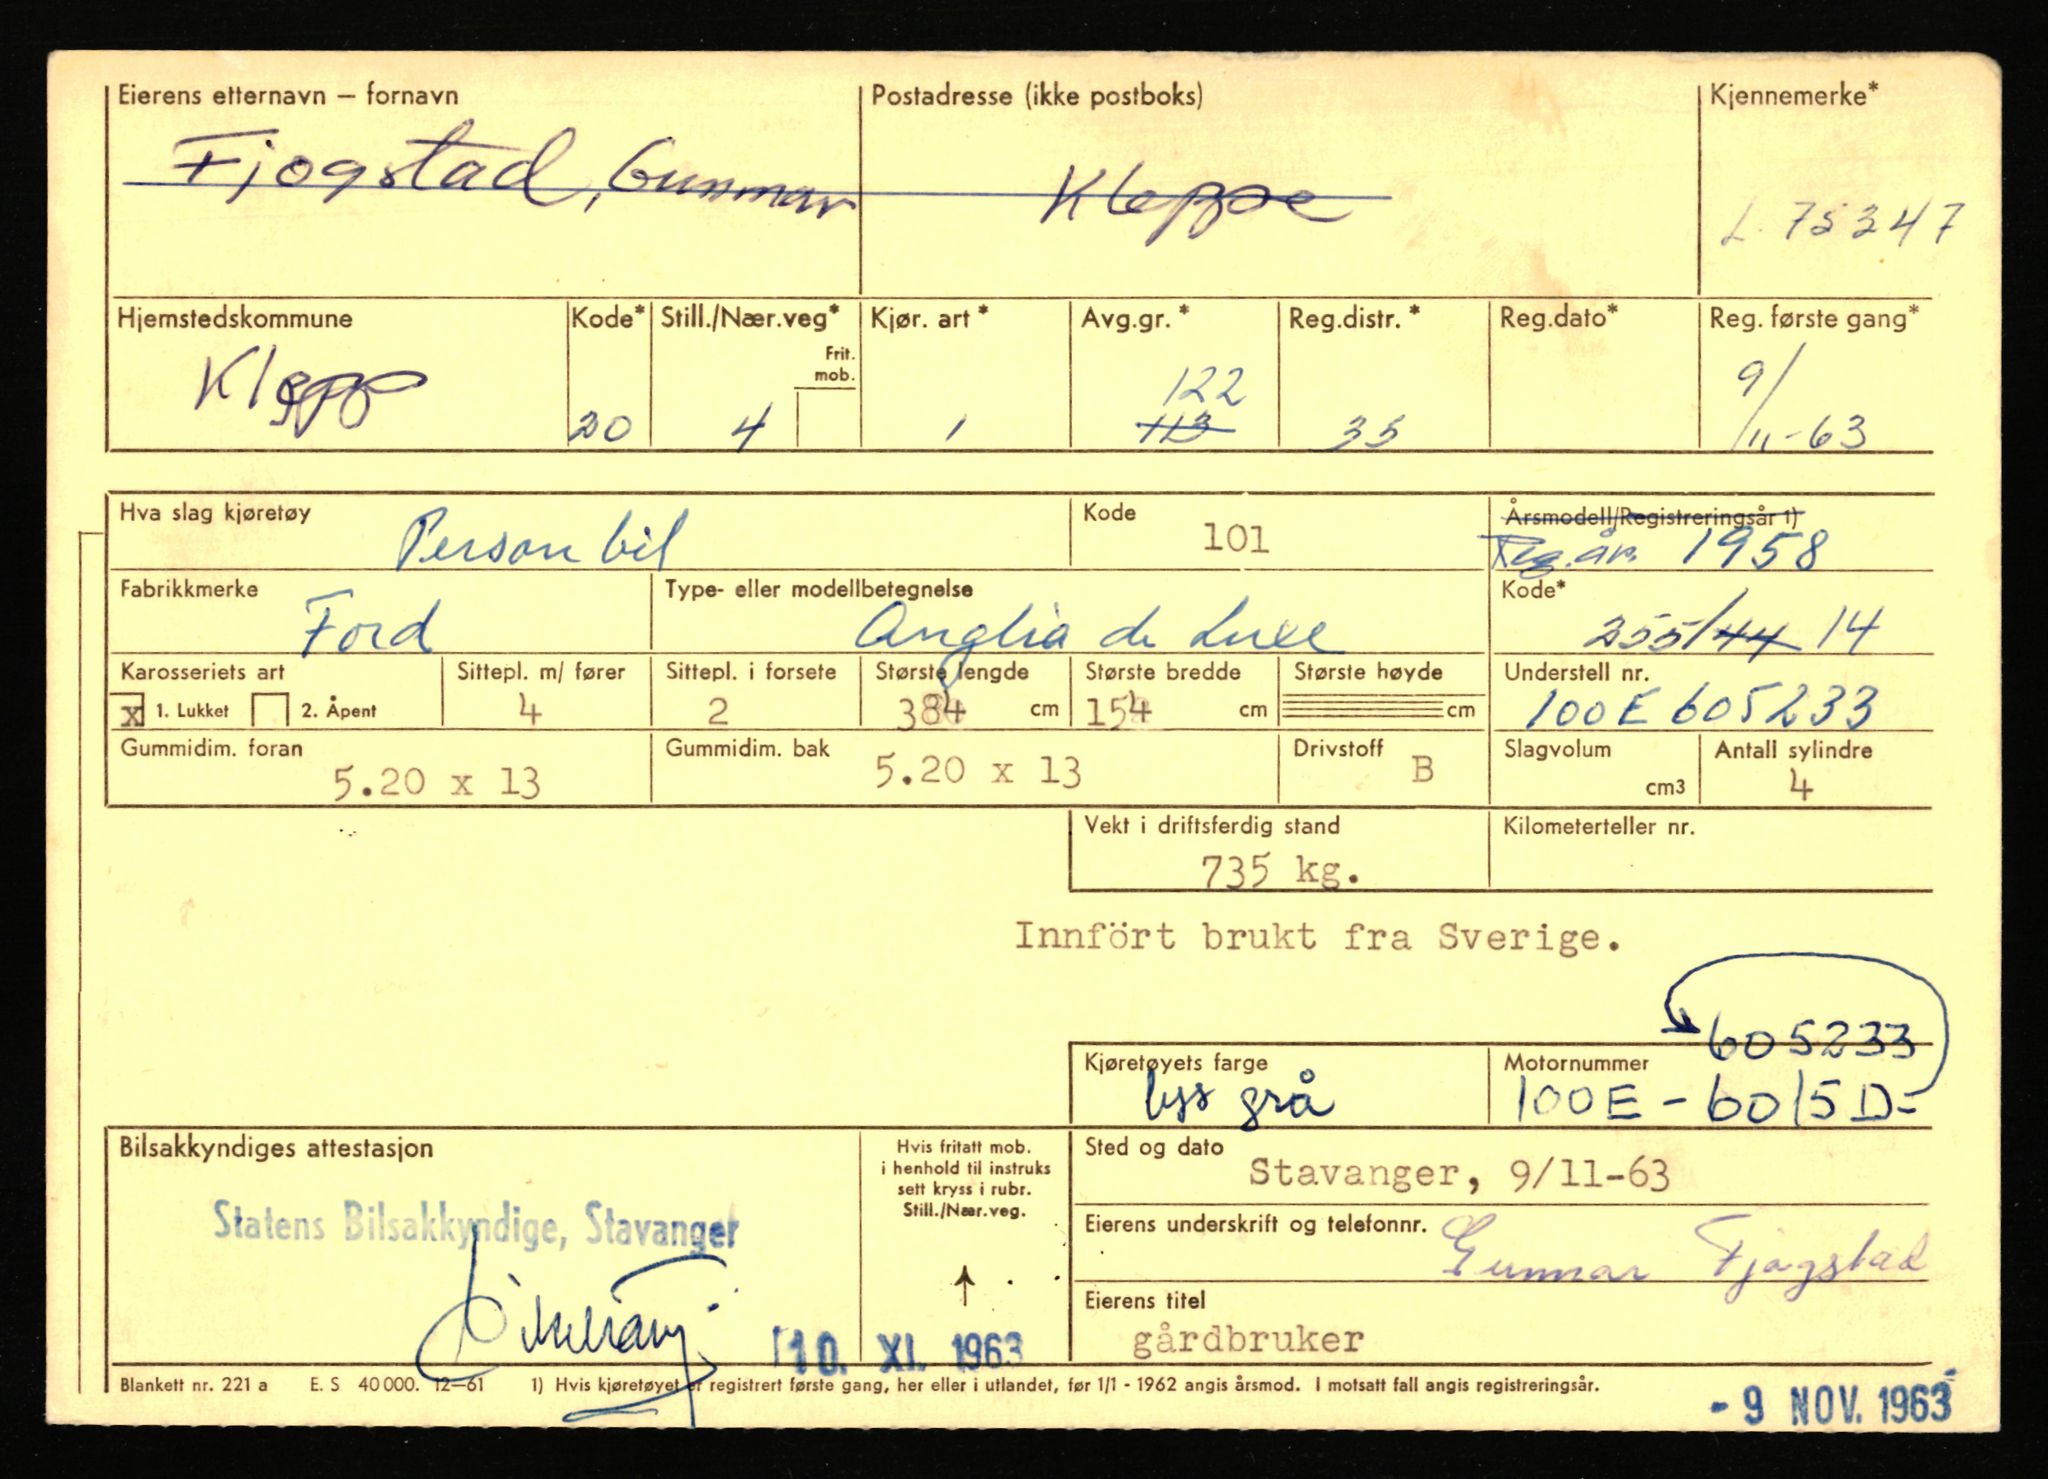 Eierens etternavn – fornavn Postadresse (ikke postboks) Kjennemerke*
Fjogstad, Gunnar Kleppe L. 75247
Hjemstedskommune Kode* Still./Nær.veg* Kjør. art * Avg.gr. * Reg.distr. * Reg.dato* Reg. første gang*
Frit.
mob.
Klepp 20 4 1 122 113 35 9/11-63
Hva slag kjøretøy Personbil Kode 101 Årsmodell/Registreringsår 1)
Reg.år. 1958
Fabrikkmerke Type- eller modellbetegnelse Kode*
Ford Anglia de Luxe 255/44 14
Karosseriets art Sittepl. m/ fører Sittepl. i forsete Største lengde Største bredde Største høyde Understell nr.
x 1. Lukket 2. Åpent 4 2 384 cm 154 cm cm 100E605233
Gummidim. foran Gummidim. bak Drivstoff Slagvolum Antall sylindre
5.20 x 13 5.20 x 13 B cm3 4
Vekt i driftsferdig stand Kilometerteller nr.
735 kg.
Innfört brukt fra Sverige.
605233
Kjøretøyets farge Motornummer
lys grå 100E-6015D-
Bilsakkyndiges attestasjon
Hvis fritatt mob.
i henhold til instruks
sett kryss i rubr.
Still./Nær.veg.
Sted og dato
Stavanger, 9/11-63
Statens Bilsakkyndige, Stavanger
Eierens underskrift og telefonnr. Gunnar Fjogstad
Eierens titel
gårdbruker
10. XI. 1963
Blankett nr. 221 a E. S 40 000. 12–61 1) Hvis kjøretøyet er registrert første gang, her eller i utlandet, før 1/1 - 1962 angis årsmod. I motsatt fall angis registreringsår.
- 9 NOV. 1963